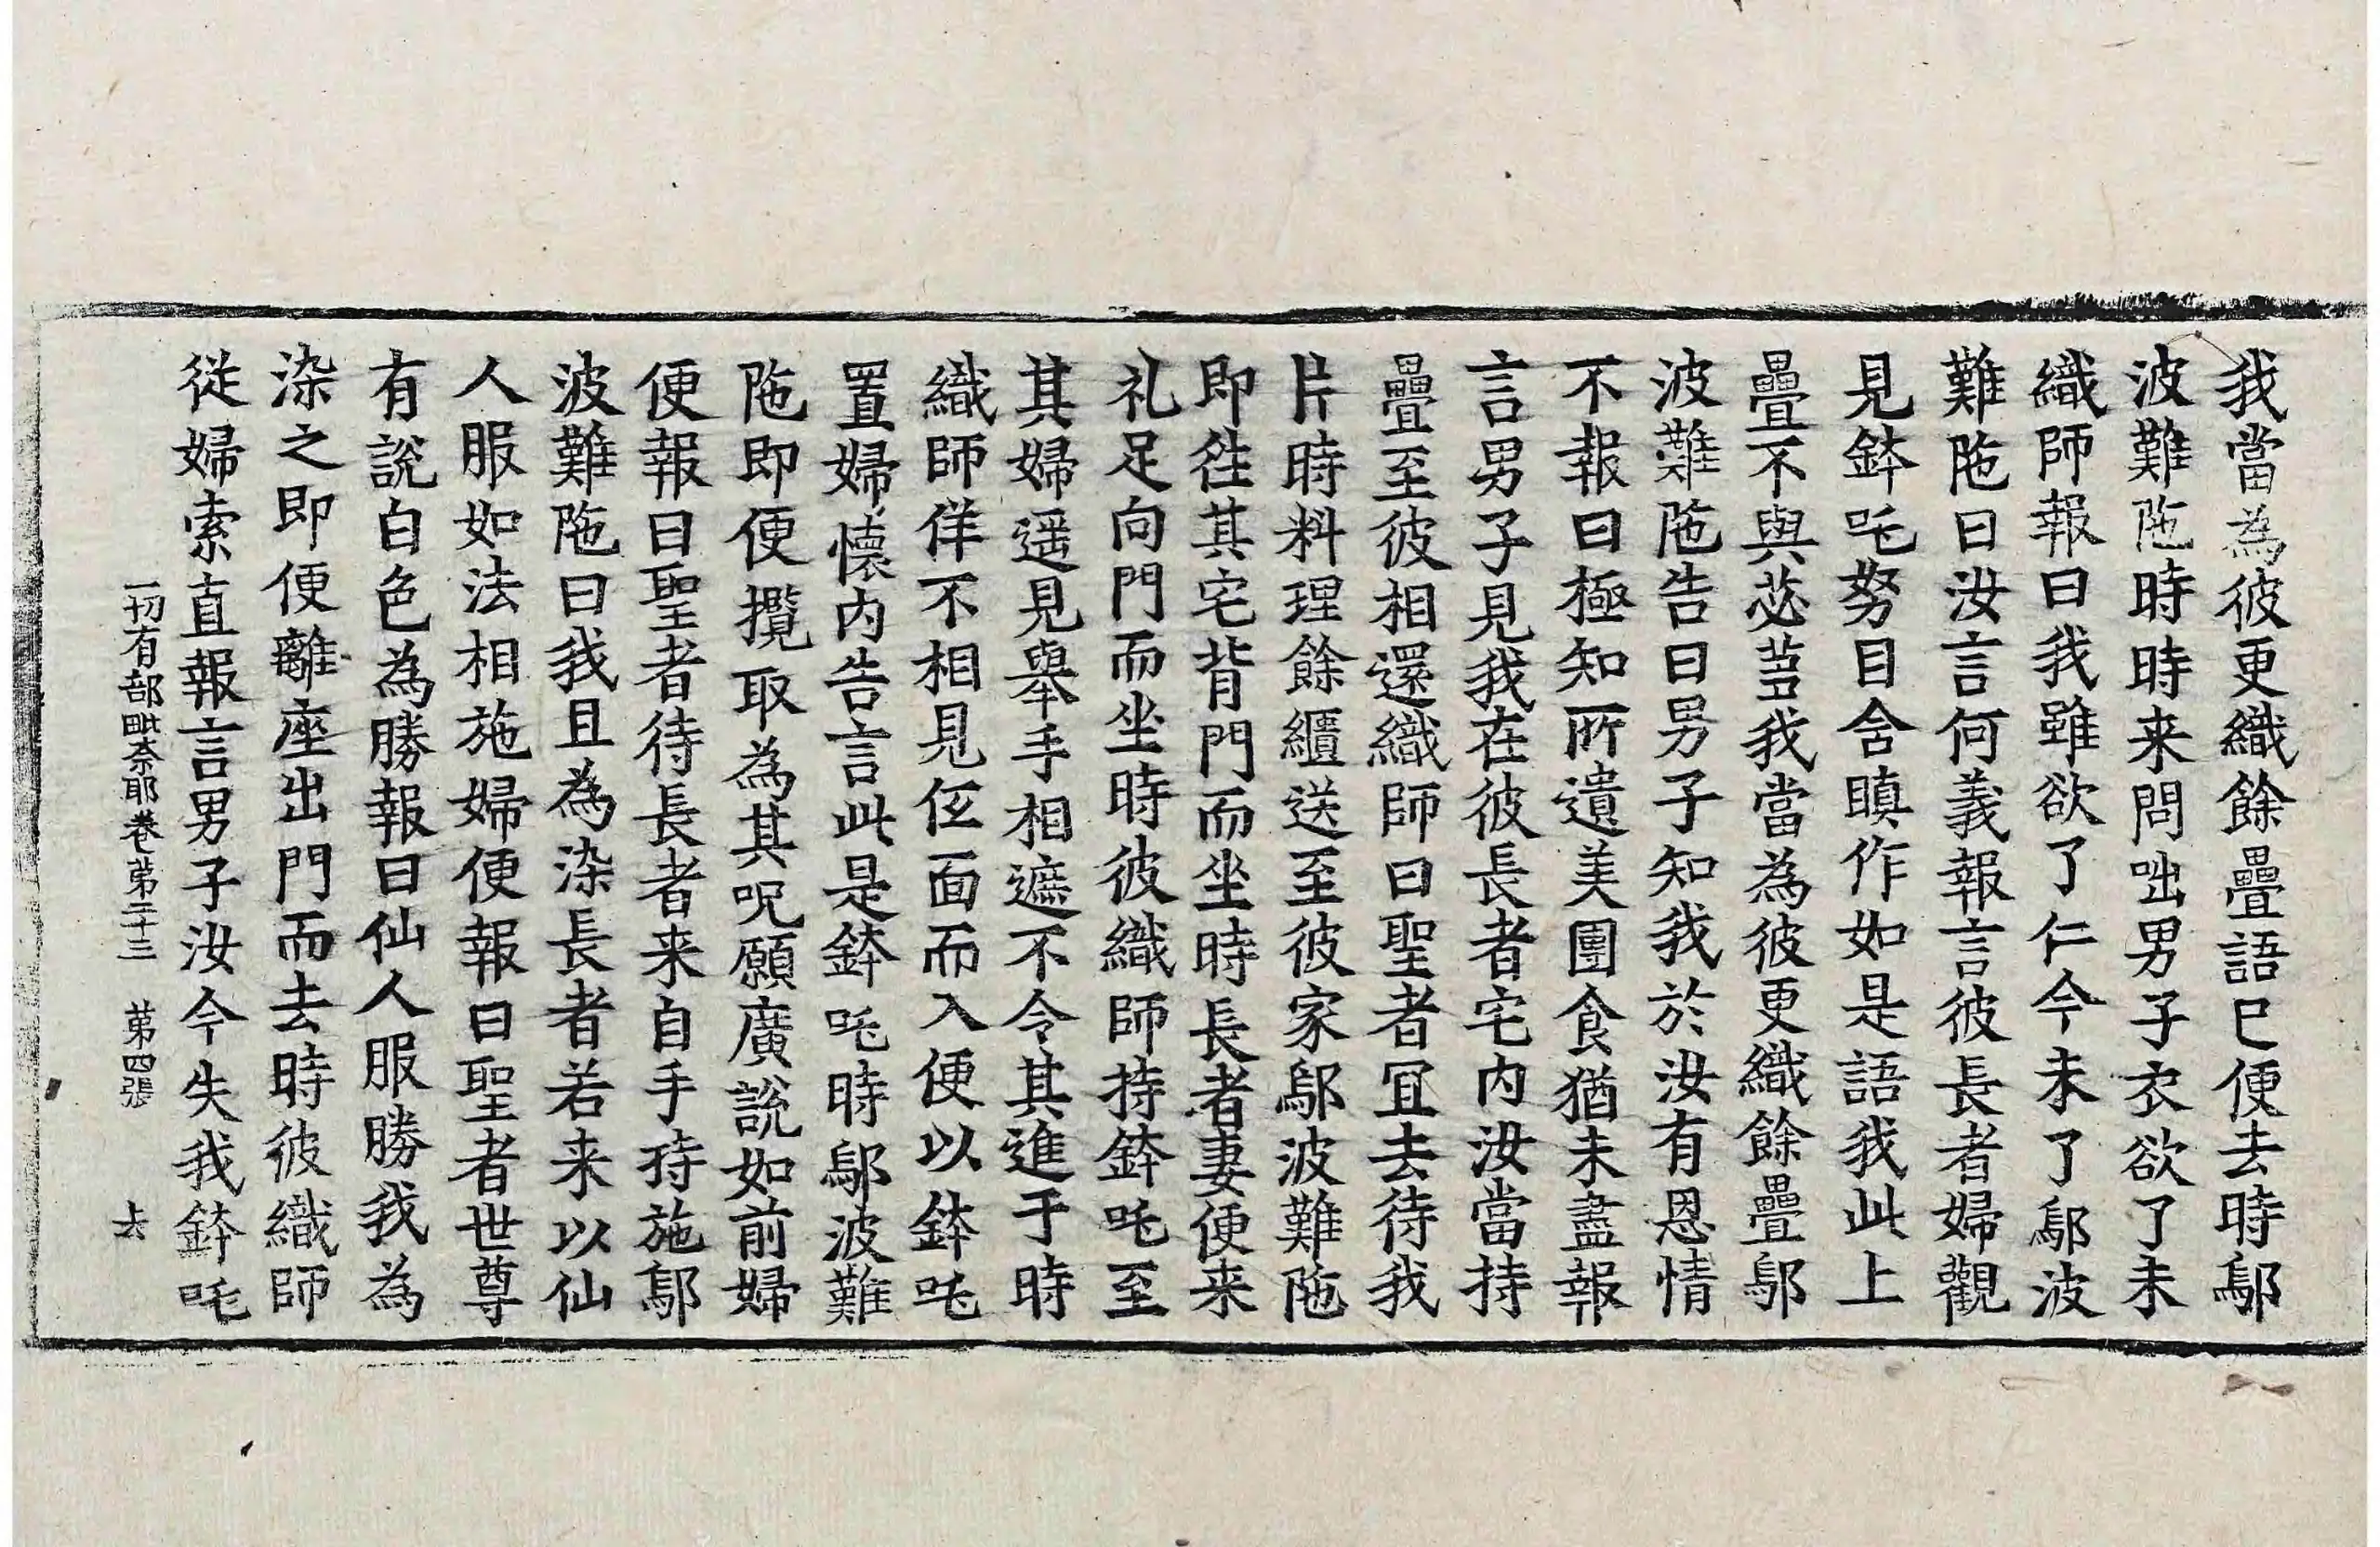 我當為彼更織餘疊語已便去時鄔
波難陁時時来問咄男子衣欲了未
織師報曰我雖欲了仁今未了鄔波
難陁曰汝言何義報言彼長者婦觀
見鉢吒努目含瞋作如是語我此上
疊不與苾蒭我當為彼更織餘疊鄔
波難陁告曰男子知我於汝有恩情
不報曰極知所遺美團食猶未盡報
言男子見我在彼長者宅内汝當持
疊至彼相還織師曰聖者冝去待我
片時料理餘纑送至彼家鄔波難陁
即徃其宅背門而坐時長者妻便来
礼足向門而坐時彼織師持鉢吒至
其婦遥見舉手相遮不令其進于時
織師佯不相見仾面而入便以鉢吒
置婦懷内告言此是鉢吒時鄔波難
陁即便攬取為其呪願廣說如前婦
便報曰聖者待長者来自手持施鄔
波難陁曰我且為染長者若来以仙
人服如法相施婦便報曰聖者世尊
有說白色為勝報曰仙人服勝我為
染之即便離座出門而去時彼織師
從婦索直報言男子汝今失我鉢吒
一切有部毗奈耶卷第二十三　第四張　去